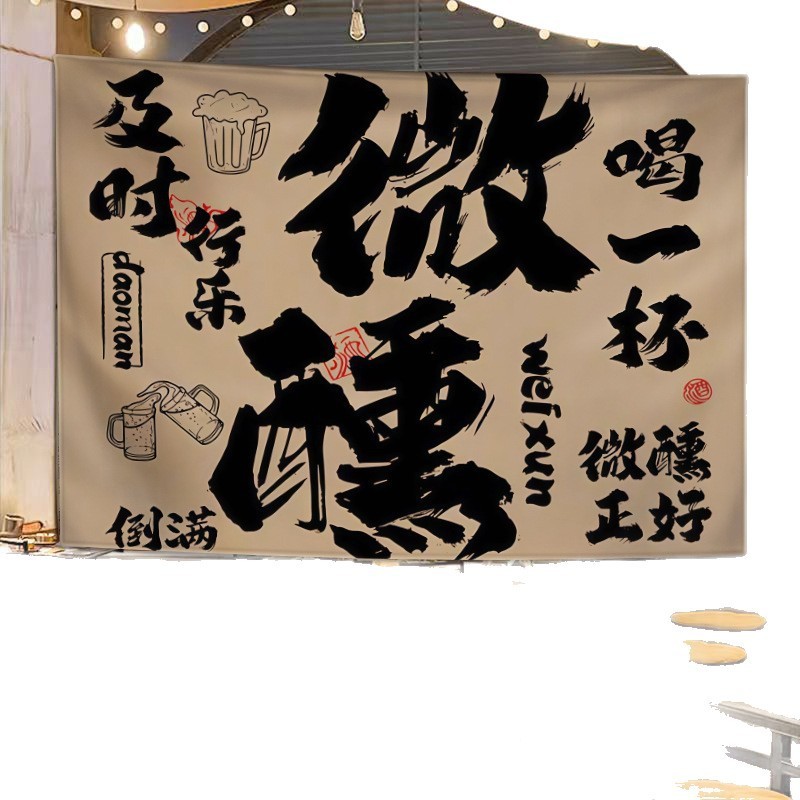 及时
行乐
daoman
倒满
微
醺
weixun
喝一杯
酒
微醺
正好